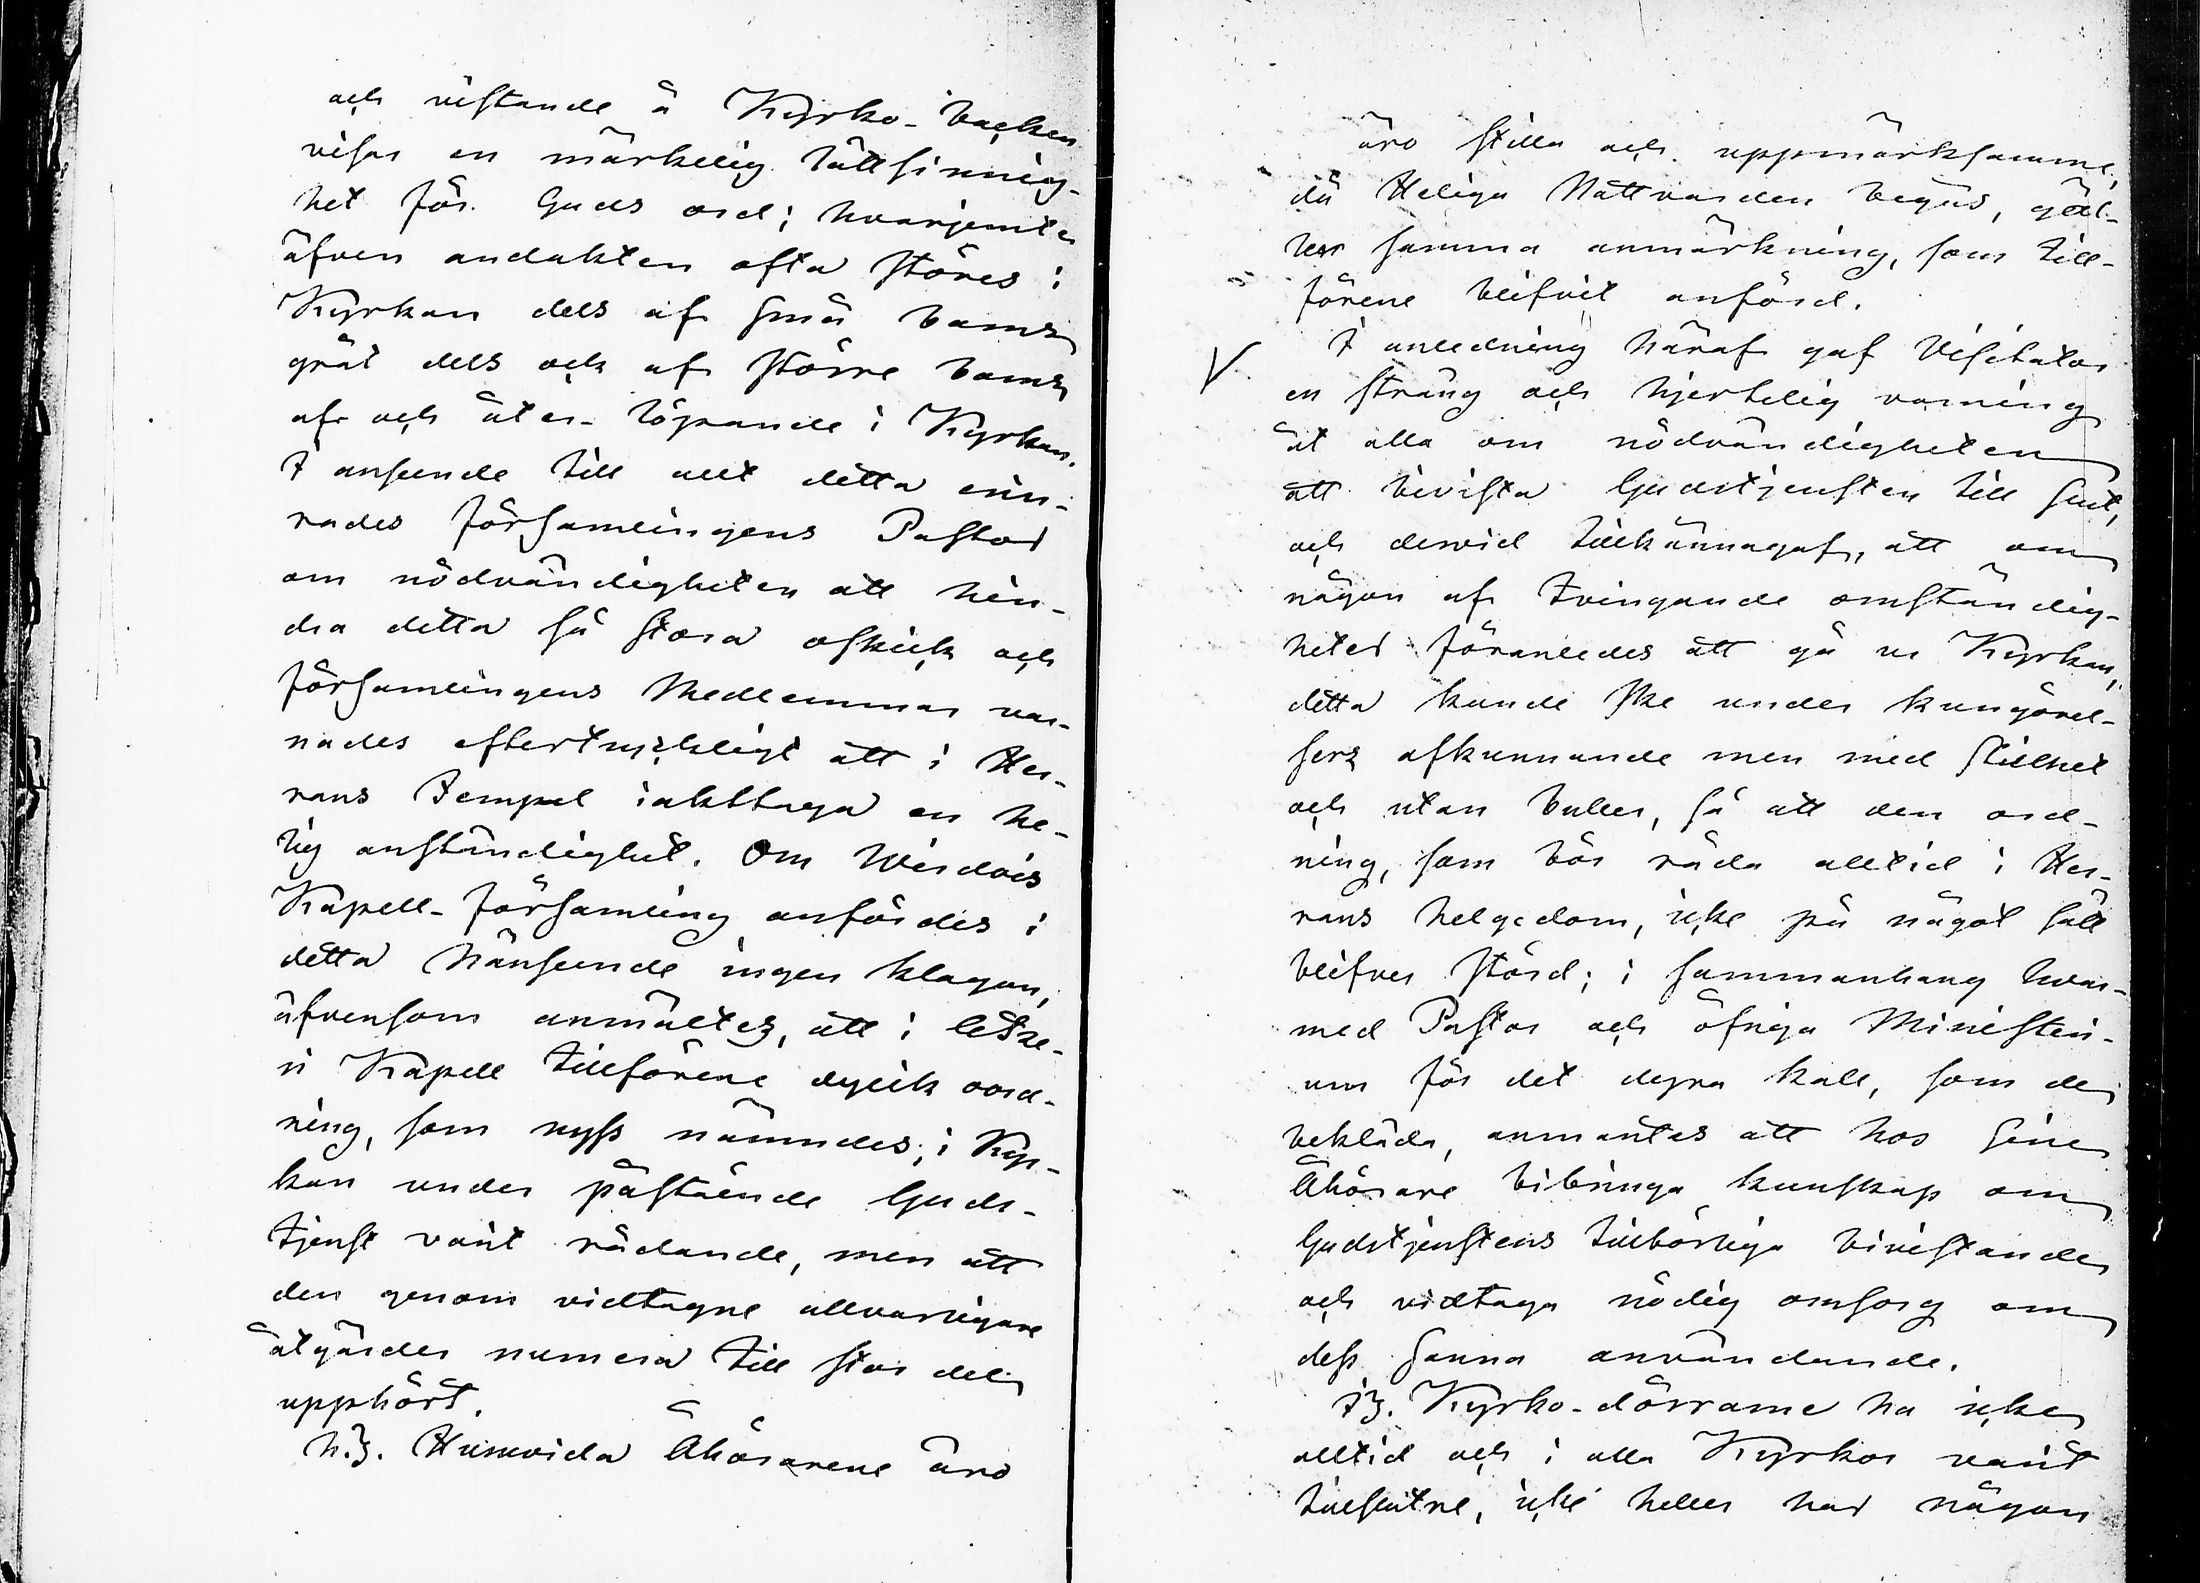 och vistande å Kyrko-backen
visar en märkelig lättsinnig-
het för Guds ord; hvarjemte
äfven andakten ofta störes i
Kyrkan dels af små barns
gråt dels ock af större barns
af och åter-löpande i Kyrkan.
I anseende till allt detta erin-
rades församlingens Pastor
om nödvändigheten att hin-
dra detta så stora oskick och
församlingens Medlemmar var-
nades eftertryckligt att i Her-
rans Tempel iakttaga en he-
lig anständighet. Om Wirdois
Kapell-församling anfördes i
detta hänseende ingen klagan,
äfvensom anmältes, att i Ätsä-
ri Kapell tillförene dylik oord-
ning, som nyss nämndes, i Kyr-
kan under påstående Guds-
tjenst varit rådande, men att
den genom vidtagne allvarligare
åtgärder numera till stor del
upphört.
h.) Huruvida Åhörarene äro
äro stilla och uppmärksamme,
då Heliga Nattvarden begås, gäl-
ler samma anmärkning, som till-
förene blifvit anförd.
I anledning häraf gaf Visitator
en sträng och hjertelig varning
åt alla om nödvändigheten
att bivista Gudstjensten till slut,
och dervid tillkännagaf, att om
någon af tvingande omständig-
heter föranledes att gå ur Kyrkan,
detta kunde ske under kungörel-
sers afkunnande men med stillhet
och utan buller, så att den ord-
ning, som bör råda alltid i Her-
rans helgedom, icke på något sätt
blifver störd; i sammanhang hvar-
med Pastor och öfriga Ministeri-
um för det dyra kall, som de
bekläda, anmantes att hos sine
Åhörare bibringa kunskap om
Gudstjenstens tillbörliga bivistande
och vidtaga nödig omsorg om
dess sanna användande.
i). Kyrko-dörrarne ha icke
alltid och i alla Kyrkor varit
tillslutne, icke heller har någon